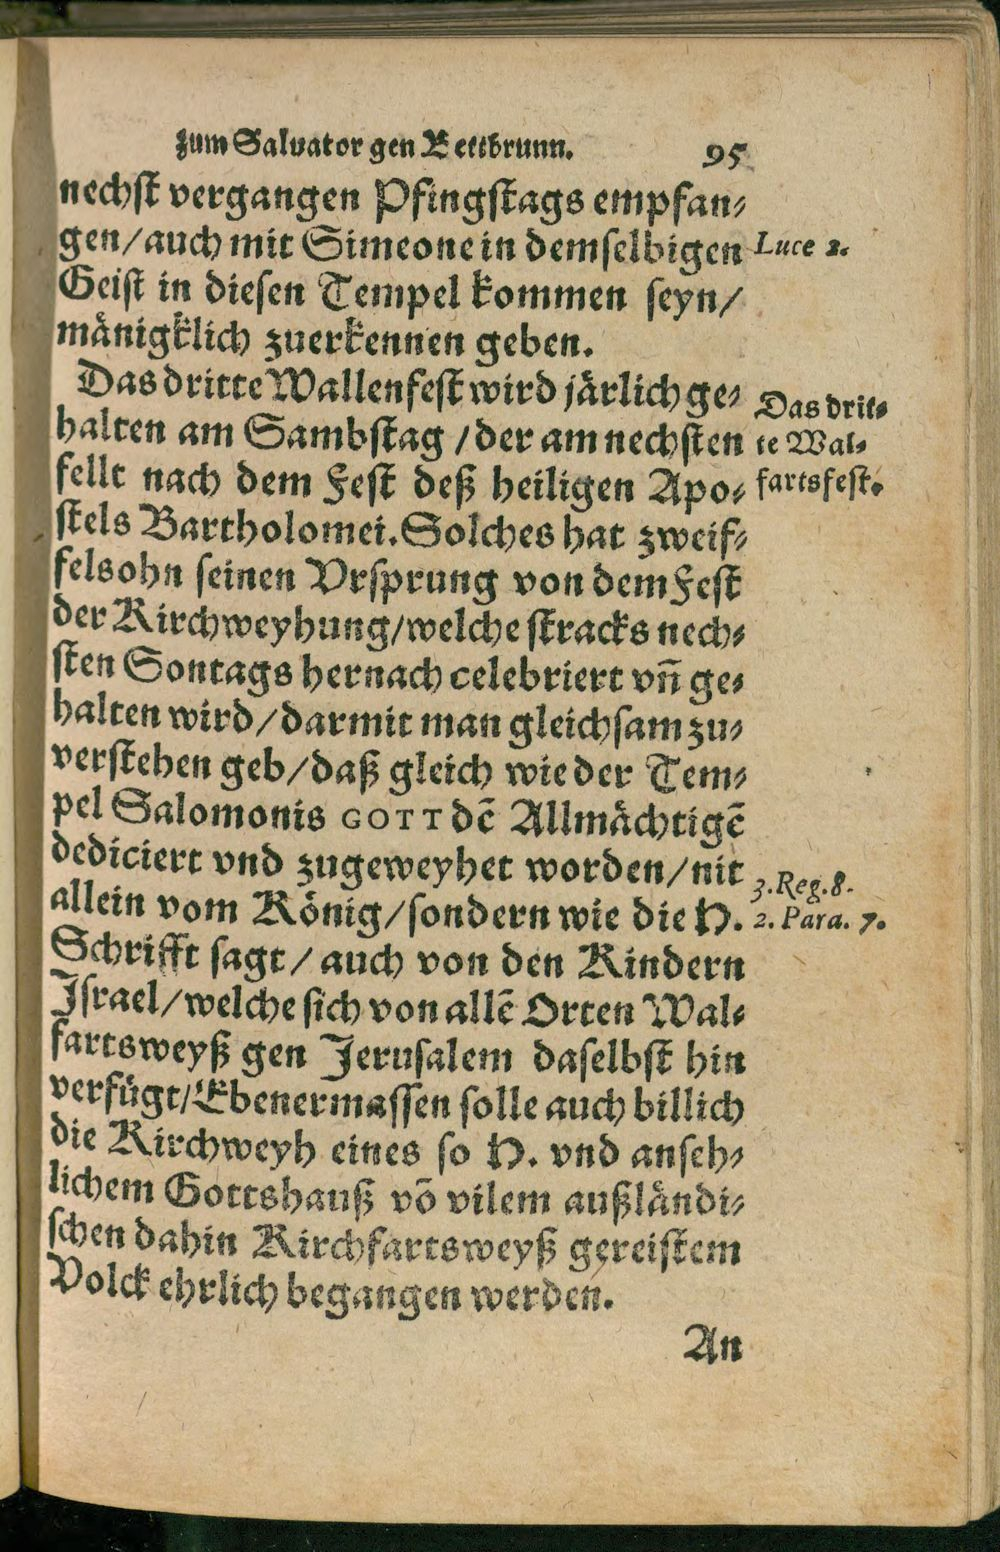 zum Salvator gen Bettbrunn. 95
nechst vergangen Pfingstags empfan⸗
gen/auch mit Simeone in demselbigen
Luce 2.
Geist in diesen Tempel kommen seyn/
mänigklich zuerkennen geben.
Das dritte Wallenfest wird järlich ge⸗
halten am Sambstag/der am nechsten
fellt nach dem Fest deß heiligen Apo⸗
Das drit⸗
te Wal⸗
fartsfest.
stels Bartholomei. Solches hat zweif⸗
felsohn seinen Vrsprung von dem Fest
der Kirchweyhung/welche stracks nech⸗
sten Sontags hernach celebriert vñ ge⸗
halten wird/darmit man gleichsam zu⸗
verstehen geb/daß gleich wie der Tem⸗
pel Salomonis GOTT dẽ Allmächtigẽ
dediciert vnd zugeweyhet worden/nit
allein vom König/sondern wie die H.
3. Reg. 8.
2. Para. 7.
Schrifft sagt/auch von den Kindern
Israel/welche sich von allẽ Orten Wal⸗
fartsweyß gen Jerusalem daselbst hin
verfügt/Ebenermassen solle auch billich
die Kirchweyh eines so H. vnd anseh⸗
lichem Gottshauß võ vilem außländi⸗
schen dahin Kirchfartsweyß gereistem
Volck ehrlich begangen werden.
An